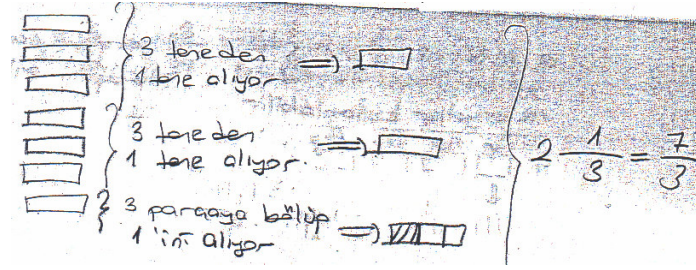 3 taneden
1 tane alıyor ⇒
3 taneden
1 tane alıyor. ⇒
3 parçaya bölüp
1'ini alıyor ⇒
2 1/3 = 7/3